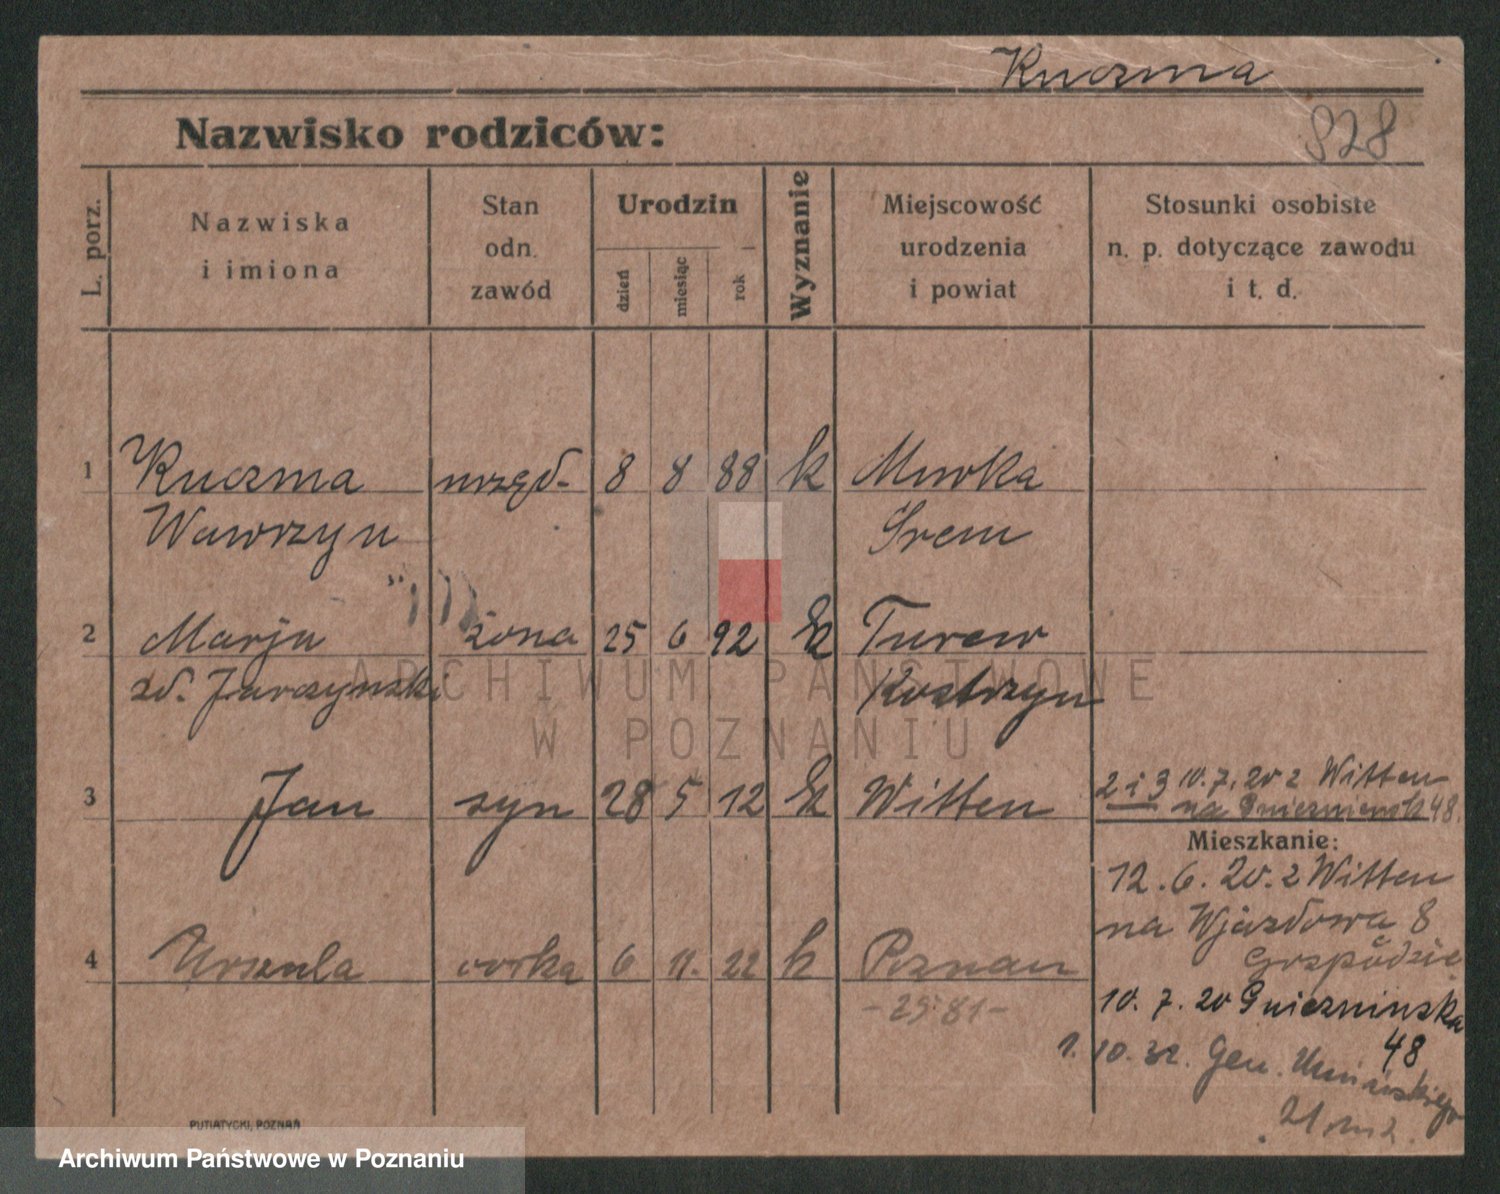 Kuczma
Nazwisko rodziców:
828
L. porz.
Nazwiska
i imiona
Stan
odn.
zawód
Urodzin
dzień
miesiąc
rok
Wyznanie
Miejscowość
urodzenia
i powiat
Stosunki osobiste
n. p. dotyczące zawodu
i t. d.
1 Kuczma urzęd- 8 8 88 k Murka
Wawrzyn Śrem
2 Marja żona 25 6 92 k Turew
zd. Jarczynski Kostrzyn
3 Jan syn 28 5 12 k Witten
2 i 3 10.7.20 z Witten
na Gnieźniensk 48.
Mieszkanie:
12.6.20. z Witten
na Wjazdowa 8
4 Urszula córka 6 11. 22 k Poznan
-2581-
10.7.20 Gniezninska
48
1.10.32. Gen. Umińskiego
21 m 2.
PUTIATYCKI, POZNAŃ
ARCHIWUM PAŃSTWOWE
W POZNANIU
Archiwum Państwowe w Poznaniu